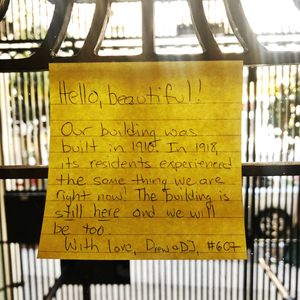 Hello, beautiful!
Our building was
built in 1910. In 1918,
its residents experienced
the same thing we are
right now! The building is
still here and we will
be too.
With love, Drew &DJ, #607